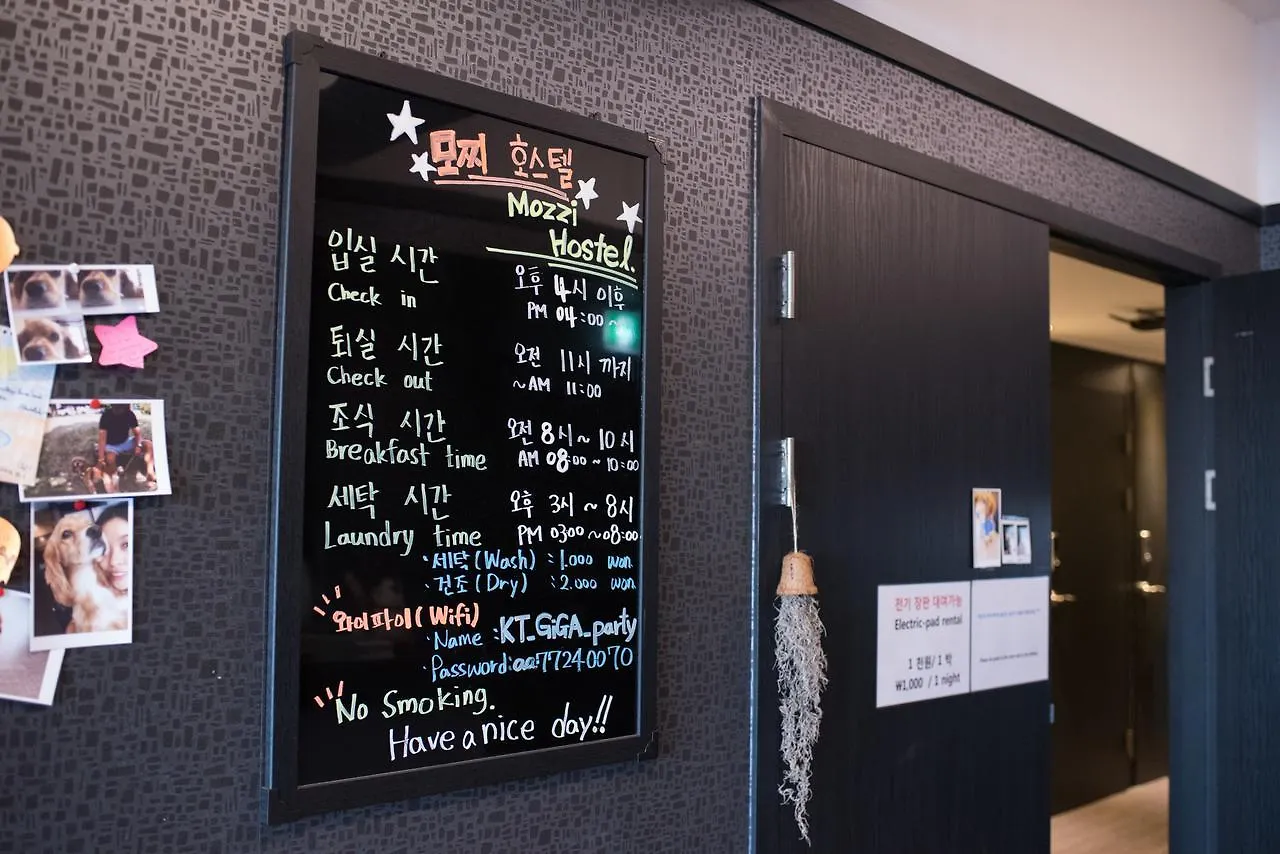 모찌 호스텔
Mozzi
Hostel.
입실 시간 오후 4시 이후
Check in PM 04:00 ~
퇴실 시간 오전 11시 까지
Check out ~AM 11:00
조식 시간 오전 8시 ~ 10시
Breakfast time AM 08:00 ~ 10:00
세탁 시간 오후 3시 ~ 8시
Laundry time PM 03:00 ~ 08:00
·세탁(Wash) : 1.000 won
·건조(Dry) : 2.000 won
와이파이(Wifi)
·Name :KT_GiGA_party
·Password:aa77240070
No Smoking.
Have a nice day!!
전기 장판 대여가능
Electric-pad rental
1 천원/ 1 박
₩1,000 / 1 night